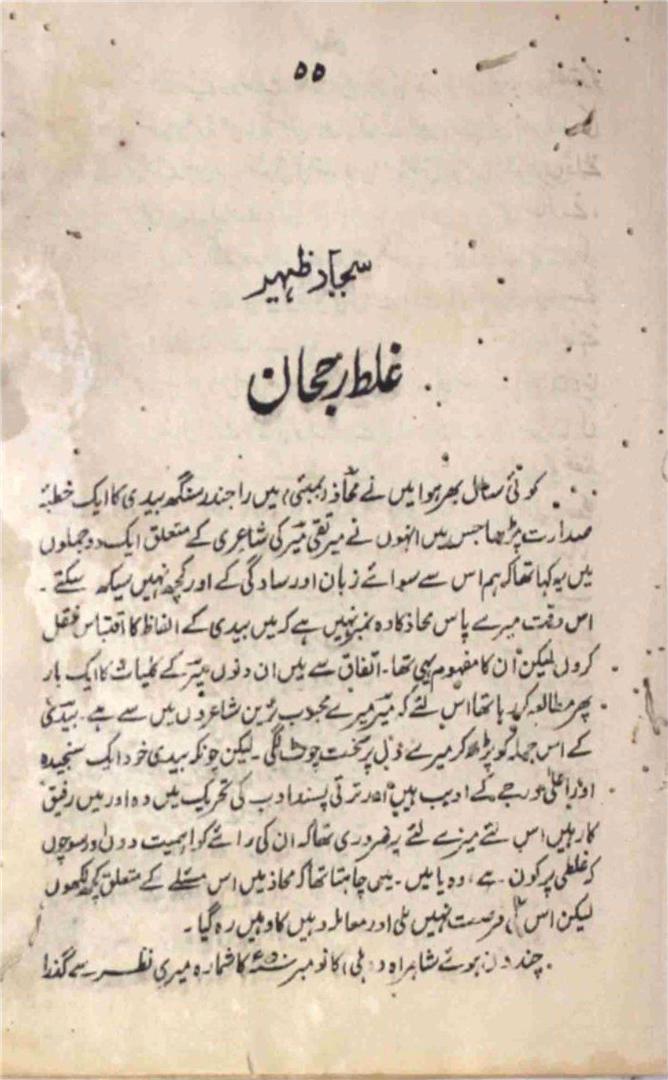 ۵۵
سجاد ظہیر
غلط رجحان
کوئی سال بھر ہوا میں نے محاذ (بمبئی) میں راجندر سنگھ بیدی کا ایک خطبۂ
صدارت پڑھا جس میں انہوں نے میر تقی میرؔ کی شاعری کے متعلق ایک دو جملوں
میں یہ کہا تھا کہ ہم اس سے سوائے زبان اور سادگی کے اور کچھ نہیں سیکھ سکتے۔
اس وقت میرے پاس محاذ کا وہ نمبر نہیں ہے کہ میں بیدی کے الفاظ کا اقتباس نقل
کروں لیکن اُن کا مفہوم یہی تھا۔ اتفاق سے میں ان دنوں میرؔ کے کلیات کا ایک بار
پھر مطالعہ کر رہا تھا اس لئے کہ میرؔ میرے محبوب ترین شاعروں میں سے ہے۔ بیدی
کے اس جملہ کو پڑھ کر میرے دل پر سخت چوٹ لگی۔ لیکن چونکہ بیدی خود ایک سنجیدہ
اور اعلیٰ درجے کے ادیب ہیں اور ترقی پسند ادب کی تحریک میں وہ اور میں رفیق
کار ہیں اس لئے میرے لئے یہ ضروری تھا کہ ان کی رائے کو اہمیت دوں اور سوچوں
کہ غلطی پر کون ہے، وہ یا میں۔ میں چاہتا تھا کہ محاذ میں اس مسئلے کے متعلق کچھ لکھوں
لیکن اس کی فرصت نہیں ملی اور معاملہ وہیں کا وہیں رہ گیا۔
چند دن ہوئے شاہراہ (دہلی) کا نومبر ۵۰ء کا شمارہ میری نظر سے گذرا